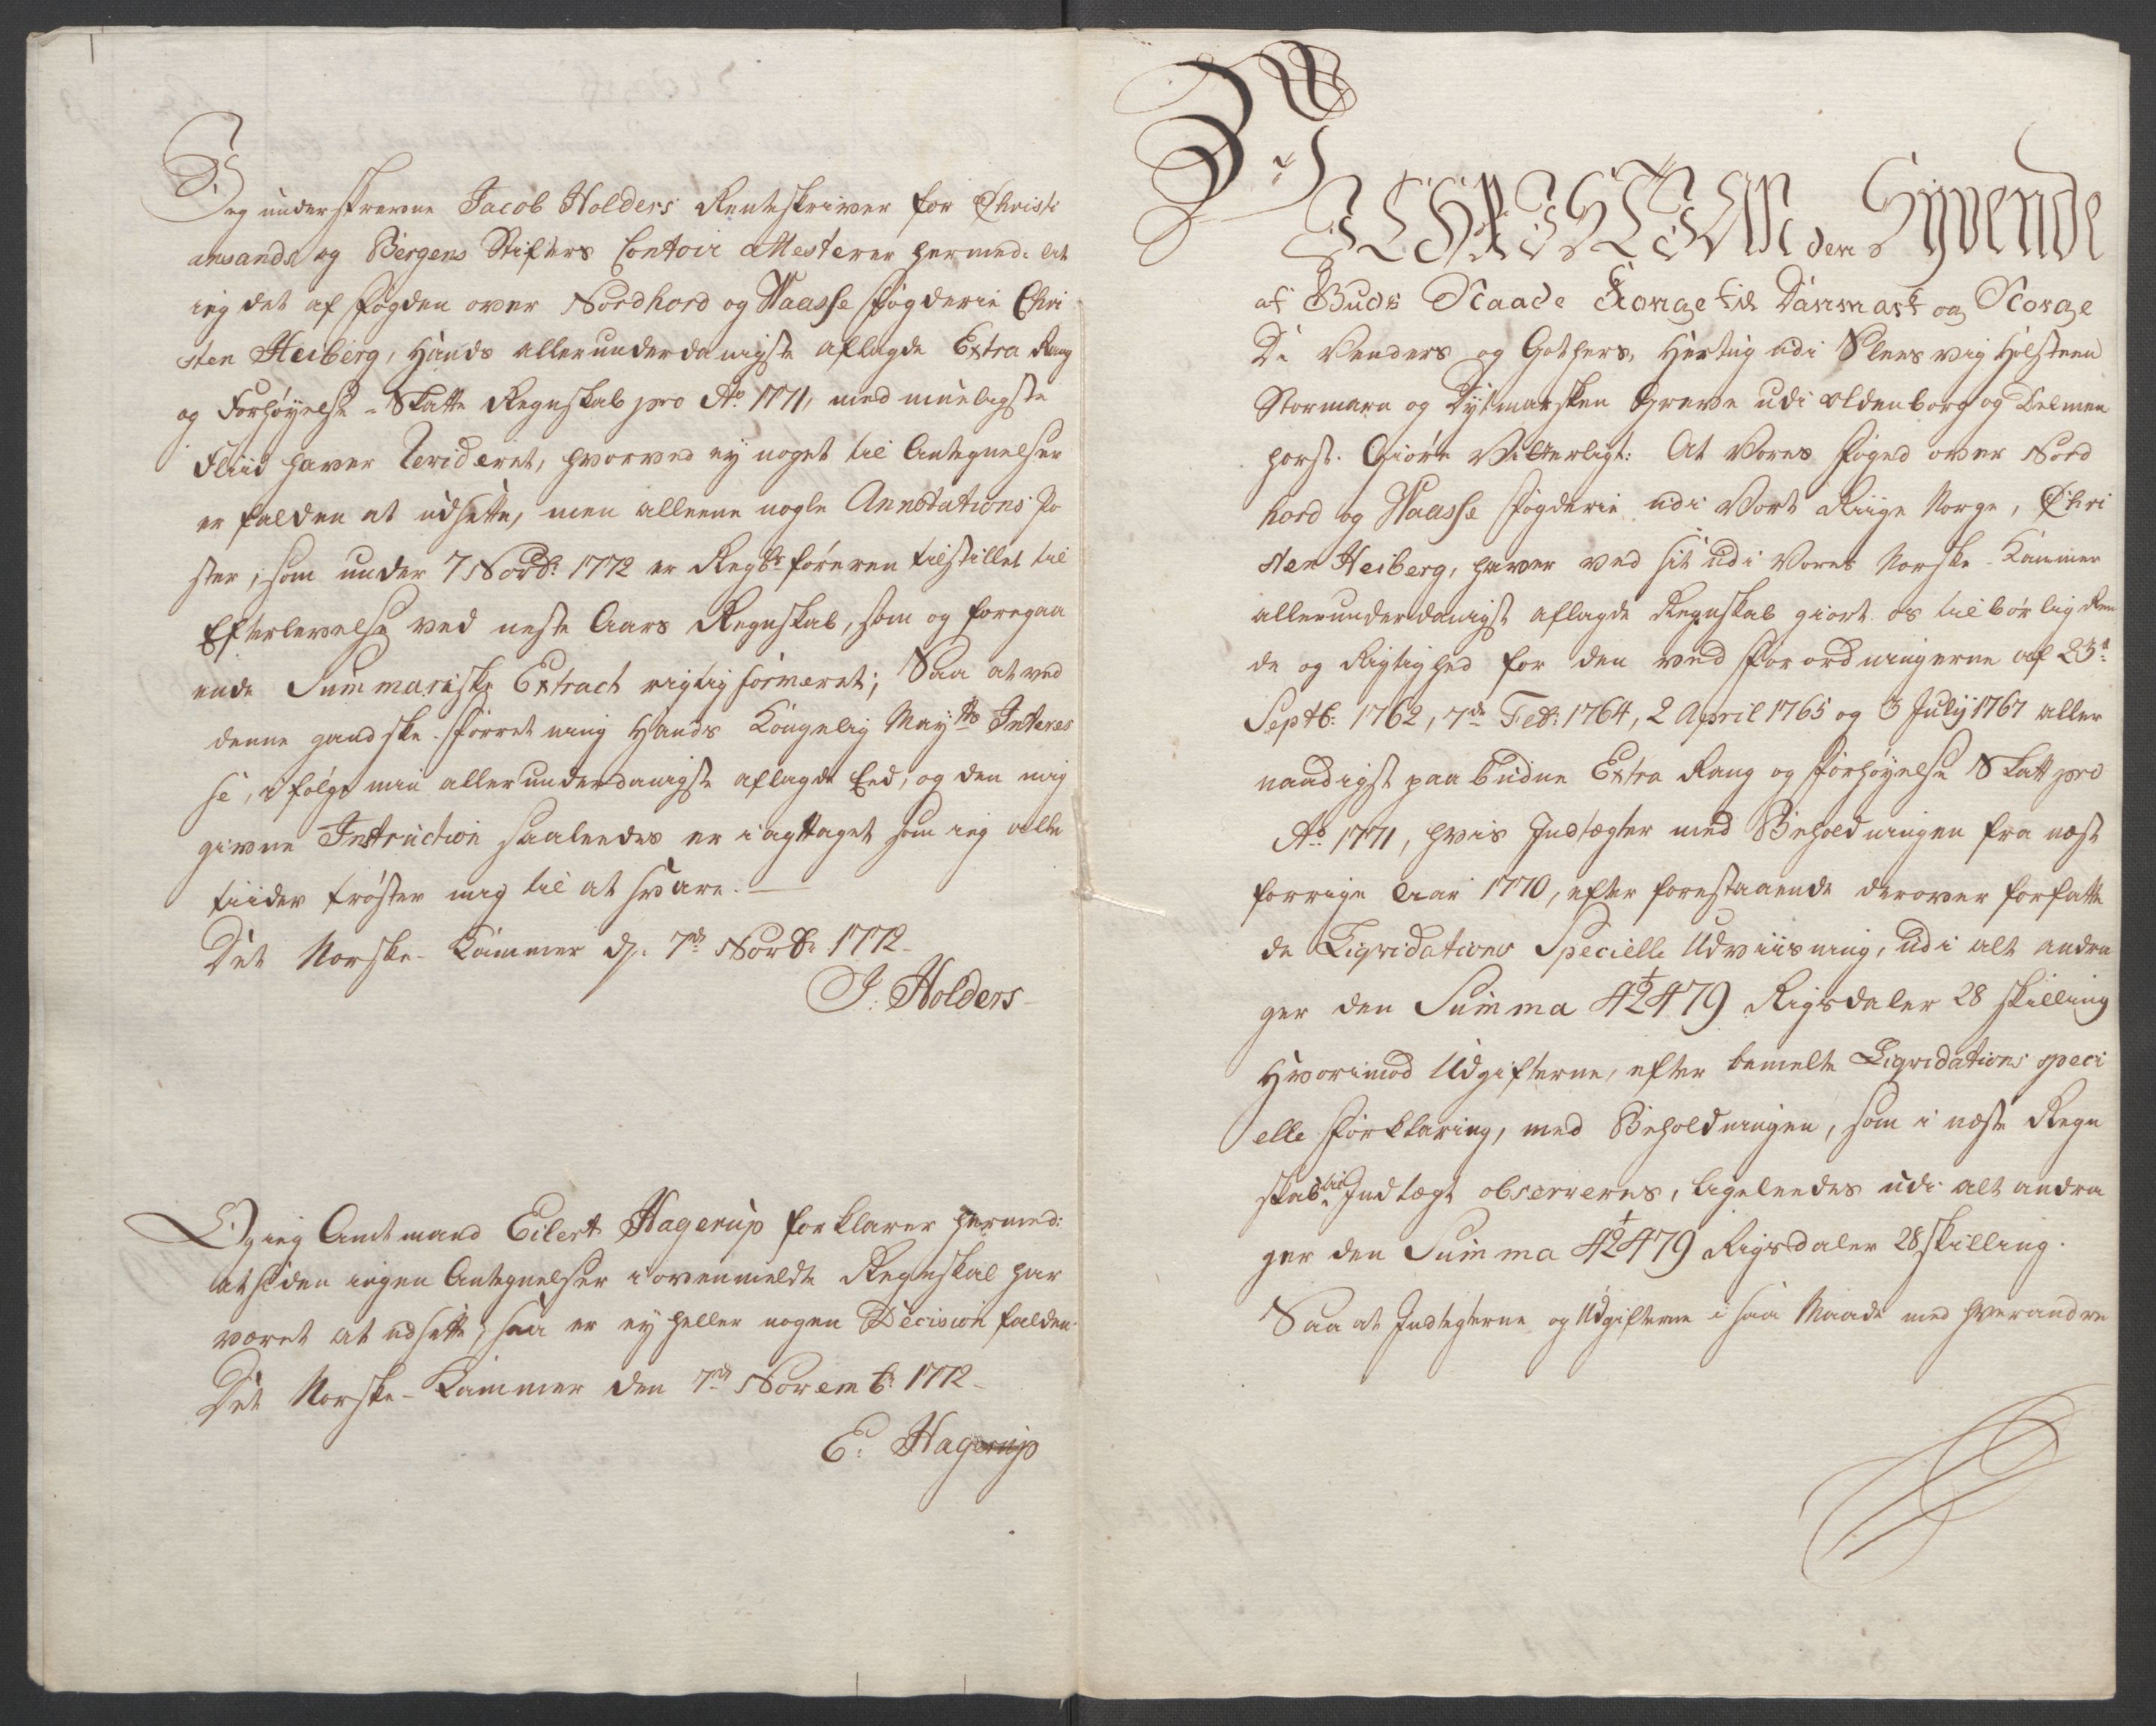 Jeg underskrevne Jacob Holders Renteskriver for Christi
ansands og Bergens Stifters Contoir attesterer hermed: at
ieg det af fogden over Nordhord og Waasse fogderie Chri
sten Heiberg, Hands allerunderdanigste aflagde Extra Rang
og Forhøyelse-Skatte Regnskab pro Ao. 1771, med mueligste
Fliid haver Revideret, hvorved ey noget til Antegnelser
er falden at udsette, men alleene nogle Annotations Po
ster, som under 7 Novbr: 1772 er Regnsk: føreren tilstillet til
Efterlevelse ved neste Aars Regnskab, som og foregaa
ende Summariske Extract rigtig formeret; Saa at ved
denne gandske Forretning Hands Kongelig May:ts Interes
se, i følge min allerunderdanigste aflagde Eed, og den mig
givne Instruction saaleedes er iagttaget som ieg alle
tiider trøster mig til at svare.
Det Norske-Kammer d. 7de Novbr: 1772
J. Holders
Og ieg Amtmand Eilert Hagerup forklarer hermed:
at siden ingen Antegnelser i ovenmeldte Regnskab har
været at udsette, saa er ey heller nogen Decision falden.
Det Norske-Kammer den 7de Novemb: 1772
E. Hagerup
Vi CHRISTIAN den Syvende
af Guds Naade Konge til Danmark og Norge
De Venders og Gothers, Hertug udi Slesvig Holsteen
Stormarn og Dytmarsken Greve udi Oldenborg og Delmen
horst. Giøre Vitterligt: At Vores foged over Nord
hord og Waasse fogderie udi Vort Riige Norge, Chri
sten Heiberg, haver ved sit udi Vores Norske-Kammer
allerunderdanigst aflagde Regnskab giort os tilbørlig Ree
de og Rigtighed for den ved Forordningerne af 23de
Septb: 1762, 7de Feb: 1764, 2 April 1765 og 3 July 1767 aller
naadigst paabudne Extra Rang og Forhøyelse Skatt pro
Ao. 1771, hvis Indtægter med Beholdningen fra næst
forrige Aar 1770, efter forestaaende derover forfatte
de Liqvidations Specielle Udviisning, udi alt andra
ger den Summa 42479 Rigsdaler 28 skilling
Hvorimod Udgifterne, efter bemelte Liqvidations speci
elle Forklaring, med Beholdningen, som i næste Regn
skab til Indtægt observeres, ligeleedes udi alt andra
ger den Summa 42479 Rigsdaler 28 skilling.
Saa at Indtegterne og Udgifterne i saa Maade med hverandre